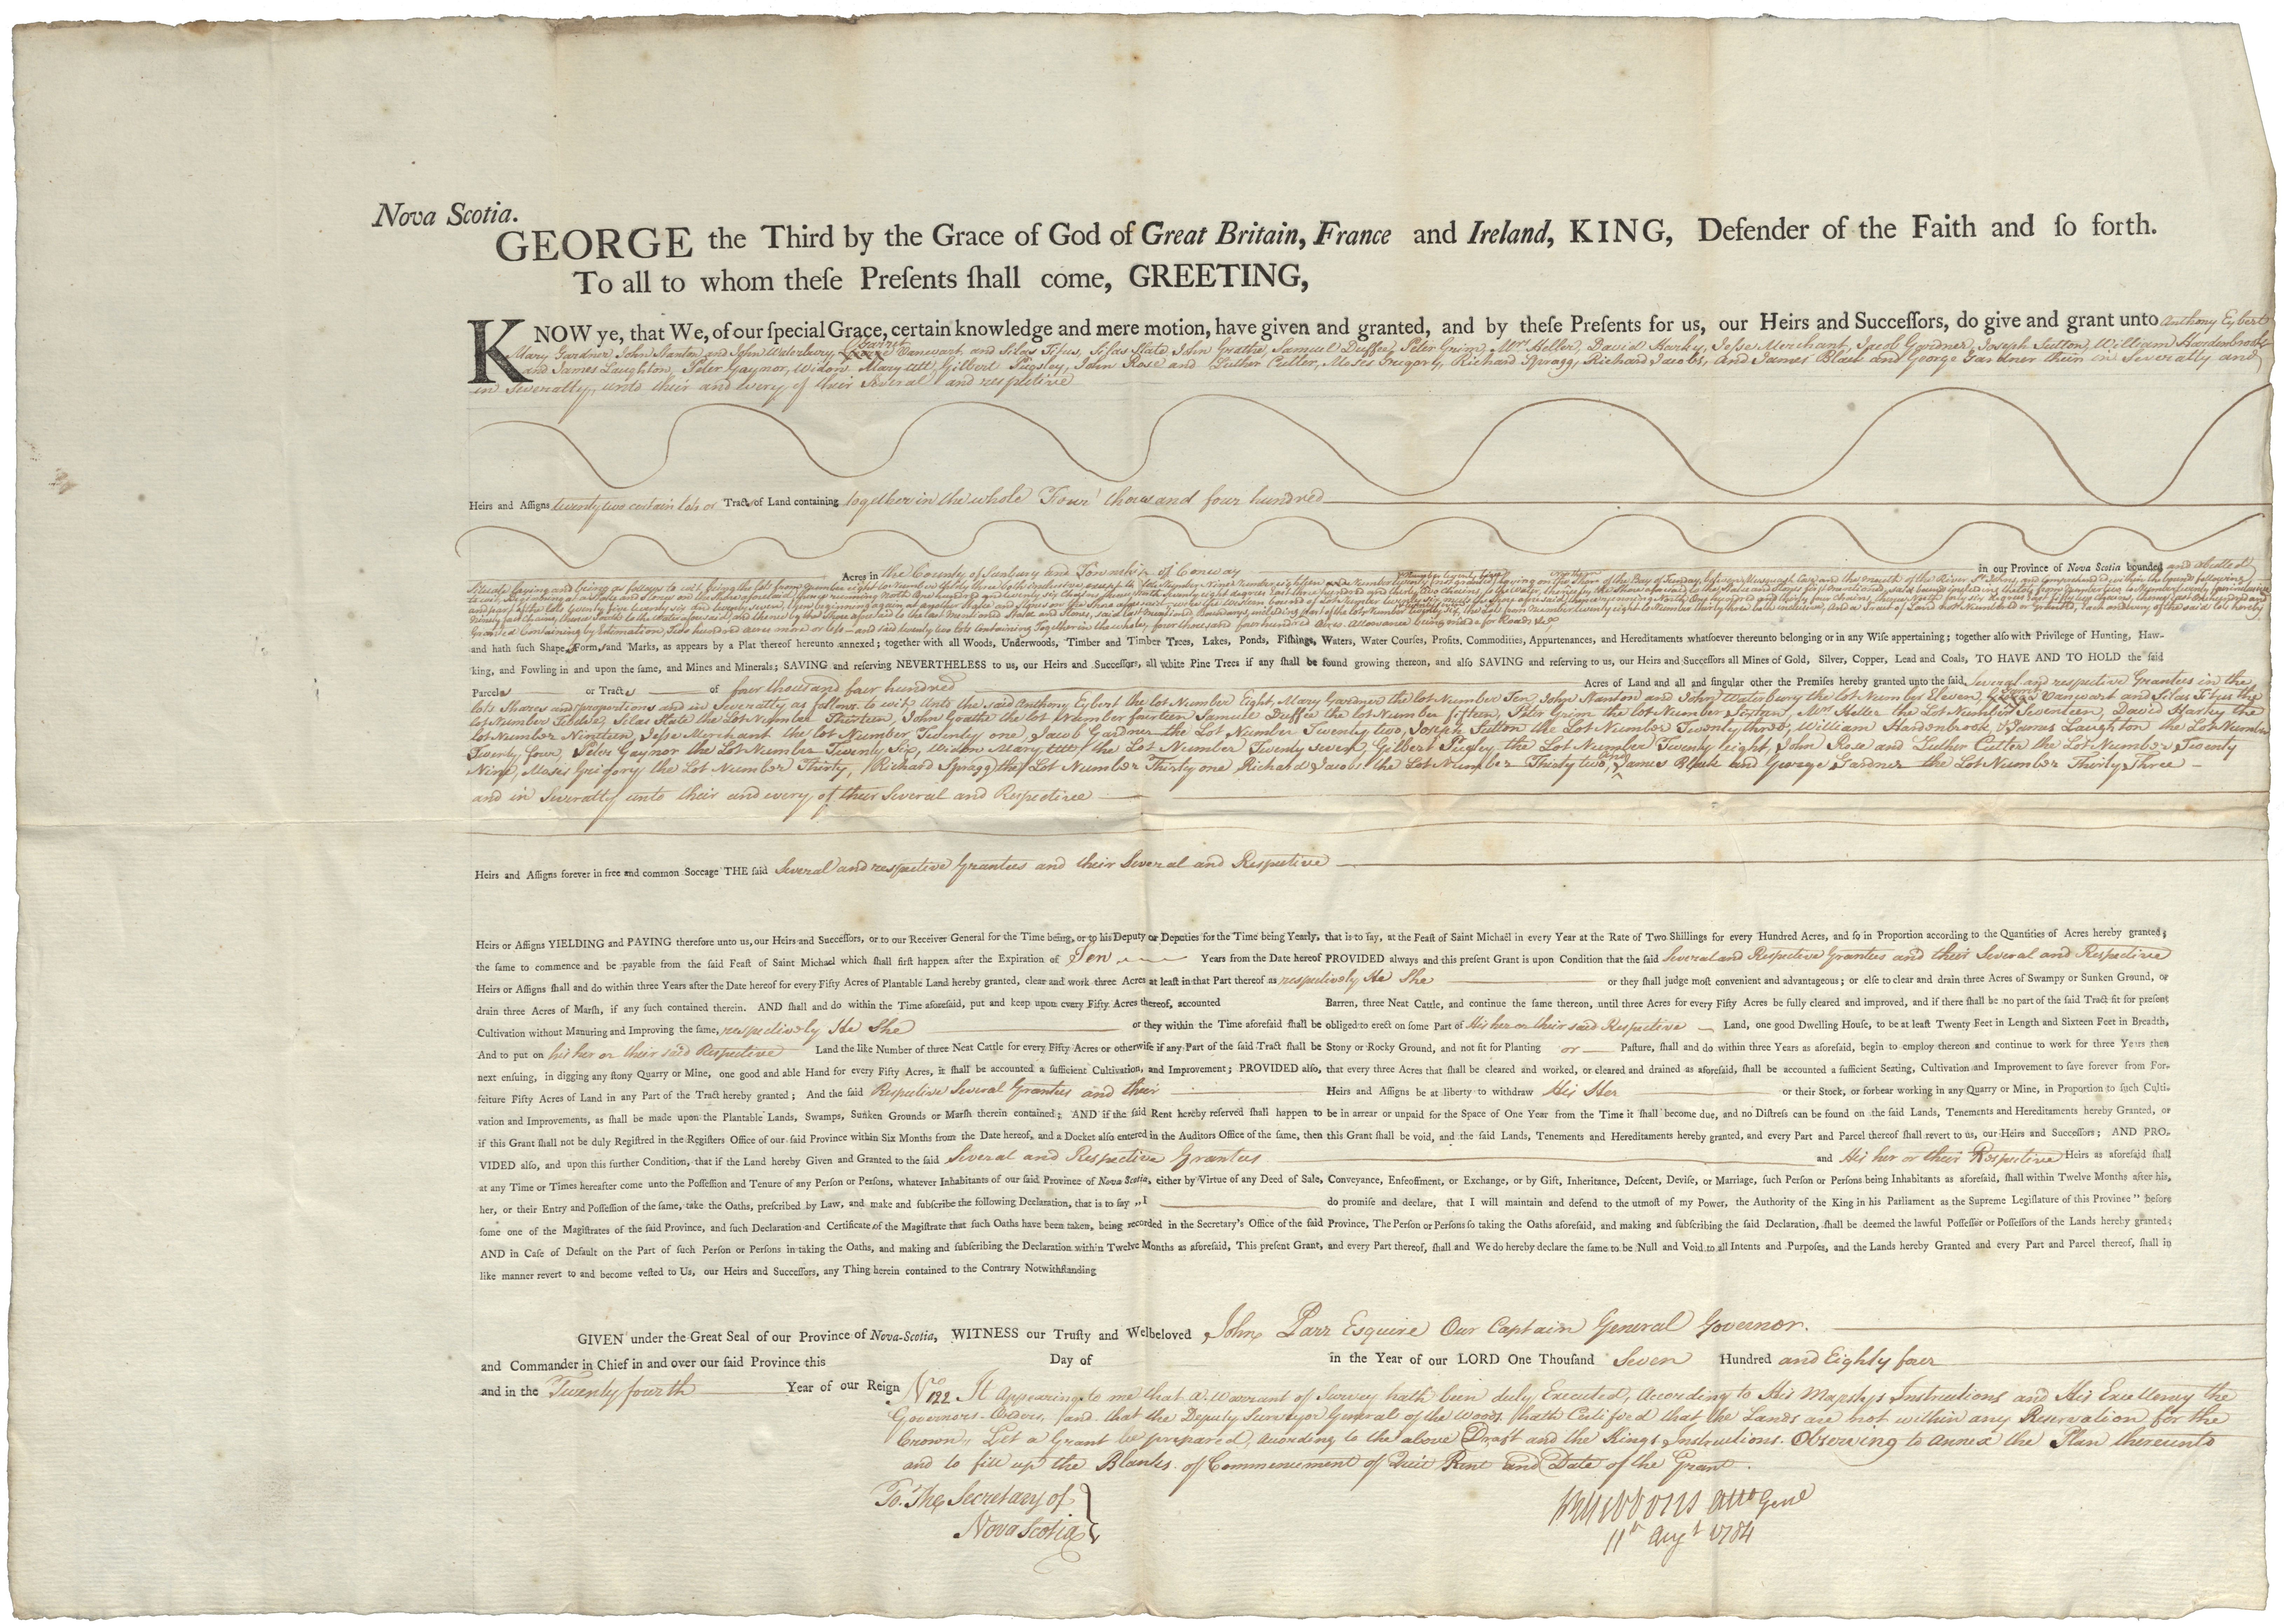 Nova Scotia.
GEORGE the Third by the Grace of God of Great Britain, France and Ireland, KING, Defender of the Faith and ſo forth.
To all to whom theſe Preſents ſhall come, GREETING,
KNOW ye, that We, of our ſpecial Grace, certain knowledge and mere motion, have given and granted, and by theſe Preſents for us, our Heirs and Succeſſors, do give and grant unto Anthony Eybert
Mary Gardner John Stanton and John Waterbury, Garret Vanwart and Silas Titus, Silas Slate, John Goatte, Samuel Duffee, Peter Grim, Mrs Heller, David Harky, Jesse Merchant, Jacob Gardner, Joseph Sutton William Hardenbrook
and James Laughton, Peter Gaynor, Widow Mary Utt, Gilbert Pugsley, John Rose and Luther Cutter, Moses Gregory, Richard Spragg, Richard Jacobs, And James Blair and George Gardner them in Severalty and
in Severalty, unto their and every of their Several and respective
Heirs and Aſſigns twenty two certain lots or Tracts of Land containing together in the whole Four thousand four hundred
Acres in the County of Sunbury and Township of Conway in our Province of Nova Scotia bounded and abutted
Situate laying and being as follows to wit, being the lots from Number eight to Number thirty three both inclusive except
Granted Containing by Estimation, Two hundred acres more or less and said twenty two lots Containing Together in the whole, four thousand four hundred Acres. Allowance being made for Roads &c
and hath ſuch Shape Form and Marks, as appears by a Plat thereof hereunto annexed; together with all Woods, Underwoods, Timber and Timber Trees, Lakes, Ponds, Fiſhings, Waters, Water Courſes, Profits, Commodities, Appurtenances, and Hereditaments whatſoever thereunto belonging or in any Wiſe appertaining; together alſo with Privilege of Hunting, Haw-
king, and Fowling in and upon the ſame, and Mines and Minerals; SAVING and reſerving NEVERTHELESS to us, our Heirs and Succeſſors, all white Pine Trees if any ſhall be found growing thereon, and alſo SAVING and reſerving to us, our Heirs and Succeſſors all Mines of Gold, Silver, Copper, Lead and Coals, TO HAVE AND TO HOLD the ſaid
Parcels or Tracts of four thousand four hundred Acres of Land and all and ſingular other the Premiſes hereby granted unto the ſaid, Several and respective Grantees in the
lots Shares and proportions and in Severalty as follows to wit Unto the said Anthony Eybert the lot Number Eight, Mary Gardner the lot Number Ten John Stanton and John Waterbury the lot Number Eleven, Garret Vanwart and Silas Titus the
lot Number Twelve, Silas Slate the Lot Number Thirteen, John Goatte the lot Number fourteen Samuel Duffee the lot Number fifteen, Peter Grim the lot Number Sixteen, Mrs Heller the Lot Number Seventeen, David Harky the
lot Number Nineteen, Jesse Merchant the lot Number Twenty one, Jacob Gardner the Lot Number Twenty two, Joseph Sutton the Lot Number Twenty three, William Hardenbrook & James Laughton the Lot Number
Twenty four, Peter Gaynor the Lot Number Twenty Six, Widow Mary Utt the Lot Number Twenty Seven, Gilbert Pugsley the Lot Number Twenty Eight, John Rose and Luther Cutter the Lot Number Twenty
Nine, Moses Gregory the Lot Number Thirty, Richard Spragg the Lot Number Thirty one Richard Jacobs the Lot Number Thirty two, and James Blair and George Gardner the Lot Number Thirty Three
and in Severalty unto their and every of their Several and Respective
Heirs and Aſſigns forever in free and common Soccage THE ſaid Several and respective Grantees and their Several and Respective
Heirs or Aſſigns YIELDING and PAYING therefore unto us, our Heirs and Succeſſors, or to our Receiver General for the Time being, or to his Deputy or Deputies for the Time being Yearly, that is to ſay, at the Feaſt of Saint Michael in every Year at the Rate of Two Shillings for every Hundred Acres, and ſo in Proportion according to the Quantities of Acres hereby granted;
the ſame to commence and be payable from the ſaid Feaſt of Saint Michael which ſhall firſt happen after the Expiration of Ten Years from the Date hereof PROVIDED always and this preſent Grant is upon Condition that the ſaid Several and Respective Grantees and their Several and Respective
Heirs or Aſſigns ſhall and do within three Years after the Date hereof for every Fifty Acres of Plantable Land hereby granted, clear and work three Acres at leaſt in that Part thereof as respectively He She or they ſhall judge moſt convenient and advantageous; or elſe to clear and drain three Acres of Swampy or Sunken Ground, or
drain three Acres of Marſh, if any ſuch contained therein. AND ſhall and do within the Time aforeſaid, put and keep upon every Fifty Acres thereof, accounted Barren, three Neat Cattle, and continue the ſame thereon, until three Acres for every Fifty Acres be fully cleared and improved, and if there ſhall be no part of the ſaid Tract fit for preſent
Cultivation without Manuring and Improving the ſame, respectively He She or they within the Time aforeſaid ſhall be obliged to erect on ſome Part of His her or their said Respective Land, one good Dwelling Houſe, to be at leaſt Twenty Feet in Length and Sixteen Feet in Breadth,
And to put on his her or their said Respective Land the like Number of three Neat Cattle for every Fifty Acres or otherwiſe if any Part of the ſaid Tract ſhall be Stony or Rocky Ground, and not fit for Planting or Paſture, ſhall and do within three Years as aforeſaid, begin to employ thereon and continue to work for three Years then
next enſuing, in digging any ſtony Quarry or Mine, one good and able Hand for every Fifty Acres, it ſhall be accounted a ſufficient Cultivation, and Improvement; PROVIDED alſo, that every three Acres that ſhall be cleared and worked, or cleared and drained as aforeſaid, ſhall be accounted a ſufficient Seating, Cultivation and Improvement to ſave forever from For-
feiture Fifty Acres of Land in any Part of the Tract hereby granted; And the ſaid Respective Several Grantees and their Heirs and Aſſigns be at liberty to withdraw His Her or their Stock, or forbear working in any Quarry or Mine, in Proportion to ſuch Culti-
vation and Improvements, as ſhall be made upon the Plantable Lands, Swamps, Sunken Grounds or Marſh therein contained; AND if the ſaid Rent hereby reſerved ſhall happen to be in arrear or unpaid for the Space of One Year from the Time it ſhall become due, and no Diſtreſs can be found on the ſaid Lands, Tenements and Hereditaments hereby Granted, or
if this Grant ſhall not be duly Regiſtred in the Regiſters Office of our ſaid Province within Six Months from the Date hereof, and a Docket alſo entered in the Auditors Office of the ſame, then this Grant ſhall be void, and the ſaid Lands, Tenements and Hereditaments hereby granted, and every Part and Parcel thereof ſhall revert to us, our Heirs and Succeſſors; AND PRO-
VIDED alſo, and upon this further Condition, that if the Land hereby Given and Granted to the ſaid Several and Respective Grantees and His her or their Respective Heirs as aforeſaid ſhall
at any Time or Times hereafter come unto the Poſſeſſion and Tenure of any Perſon or Perſons, whatever Inhabitants of our ſaid Province of Nova Scotia, either by Virtue of any Deed of Sale, Conveyance, Enfeoffment, or Exchange, or by Gift, Inheritance, Deſcent, Deviſe, or Marriage, ſuch Perſon or Perſons being Inhabitants as aforeſaid, ſhall within Twelve Months after his,
her, or their Entry and Poſſeſſion of the ſame, take the Oaths, preſcribed by Law, and make and ſubſcribe the following Declaration, that is to ſay „I do promiſe and declare, that I will maintain and defend to the utmoſt of my Power, the Authority of the King in his Parliament as the Supreme Legiſlature of this Province" before
ſome one of the Magiſtrates of the ſaid Province, and ſuch Declaration and Certificate of the Magiſtrate that ſuch Oaths have been taken, being recorded in the Secretary's Office of the ſaid Province, The Perſon or Perſons ſo taking the Oaths aforeſaid, and making and ſubſcribing the ſaid Declaration, ſhall be deemed the lawful Poſſeſſor or Poſſeſſors of the Lands hereby granted;
AND in Caſe of Default on the Part of ſuch Perſon or Perſons in taking the Oaths, and making and ſubſcribing the Declaration within Twelve Months as aforeſaid, This preſent Grant, and every Part thereof, ſhall and We do hereby declare the ſame to be Null and Void to all Intents and Purpoſes, and the Lands hereby Granted and every Part and Parcel thereof, ſhall in
like manner revert to and become veſted to Us, our Heirs and Succeſſors, any Thing herein contained to the Contrary Notwithſtanding
GIVEN under the Great Seal of our Province of Nova-Scotia, WITNESS our Truſty and Welbeloved John Parr Esquire Our Captain General Governor.
and Commander in Chief in and over our ſaid Province this Day of in the Year of our LORD One Thouſand Seven Hundred and Eighty four
and in the Twenty fourth Year of our Reign No 122 It Appearing to me that a Warrant of Survey hath been duly Executed, According to His Majestys Instructions and His Excellency the
Governors Orders, and that the Deputy Surveyor General of the Woods hath Certified that the Lands are not within any Reservation for the
Crown, Let a Grant be prepared, according to the above Draft and the Kings Instructions. Observing to annex the Plan thereunto
and to fill up the Blanks of Commencement of Quit Rent and Date of the Grant.
To The Secretary of
Nova Scotia
Gibbons Atto Genl
11th Augt 1784